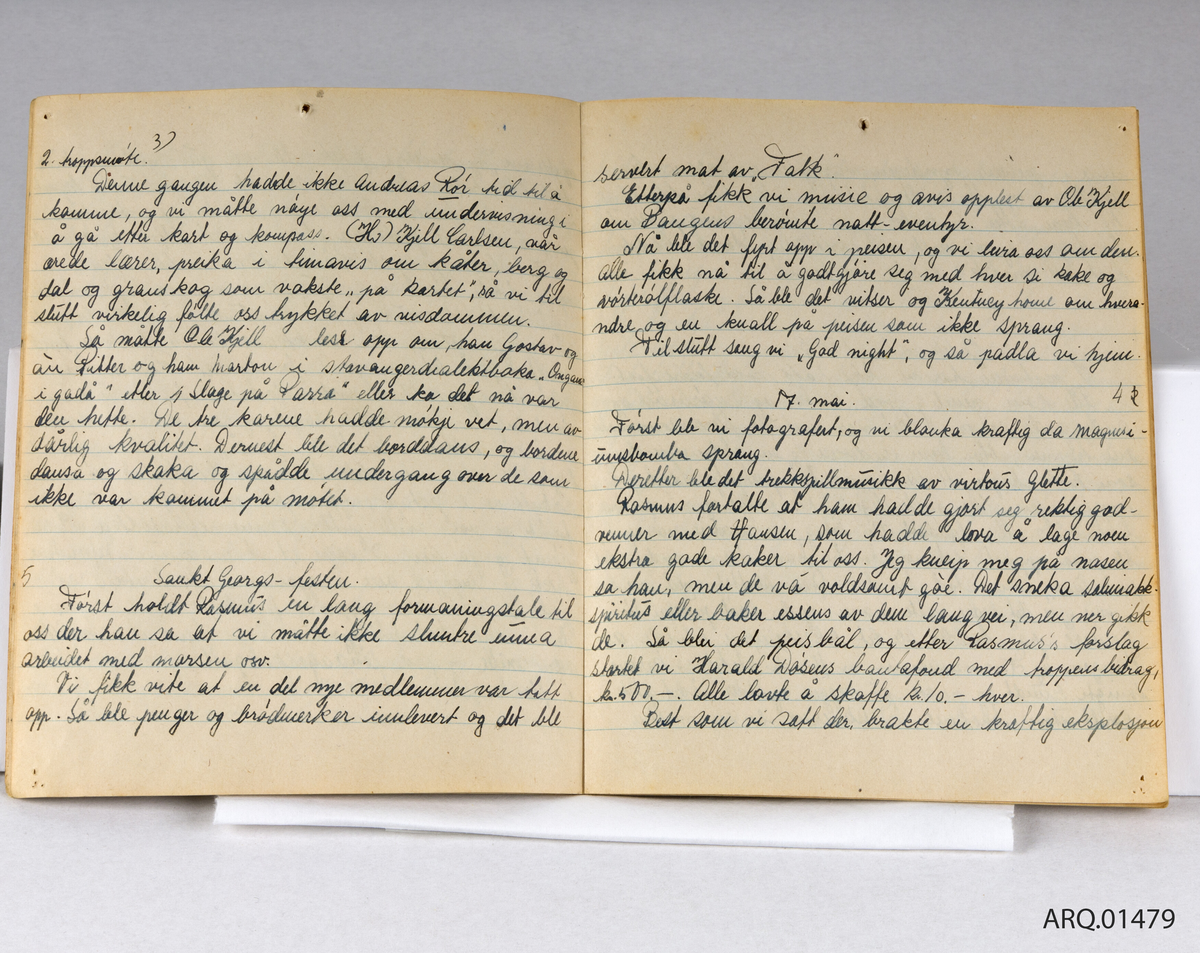 3)
2. troppsmöte.
Denne gangen hadde ikke Andreas Rör tid til å
komme, og vi måtte nöye oss med undervisning i
å gå etter kart og kompass. (Hr) Kjell Carlsen, vår
ærede lærer, preika i timavis om kåter, berg og
dal og granskog som vokste „på kartet", så vi til
slutt virkelig fölte oss trykket av visdommen.
Så måtte Ole Kjell lese opp om, han Gostav og
än Pitter og ham Morton i stavangerdialektboka „Ongane
i gadå" etter „Slage på Parra" eller ka det nå var
den hette. De tre karene hadde mökji vet, men av
dårlig kvalitet. Dernest ble det borddans, og bordene
dansa og skaka og spådde undergang over de som
ikke var kommet på mötet.
5
Sankt Georgs-festen.
Först holdt Rasmus en lang formaningstale til
oss der han sa at vi måtte ikke sluntre unna
arbeidet med marsen osv.
Vi fikk vite at en del nye medlemmer var tatt
opp. Så ble penger og brödmerker innlevert og det ble
servert mat av „Takk".
Etterpå fikk vi music og avis opplest av Ole Kjell
om Haugens berömte natt-eventyr.
Nå ble det fyrt opp i peisen, og vi lura oss om den.
alle fikk nå til å godtgjöre seg med hver si kake og
vörterölflaske. Så ble det vitser og Kentucy home om hvera-
ndre og en knall på peisen som ikke sprang.
Til slutt song vi „God night", og så padla vi hjem.
4
17. mai.
Först ble vi fotografert, og vi blonka kraftig da magnesi-
umsbomba sprang.
Deretter ble det trekkspillmusikk av virtous Glette.
Rasmus fortalte at ham hadde gjort seg rektig god-
venner med Hansen, som hadde lova å lage noen
ekstra gode kaker til oss. Jeg kneip meg på nasen
sa han, men de vå voldsomt göe. Det smeka salmiakk-
spiritus eller baker essens av dem lang vei, men ner gikk
de. Så blei det peisbål, og etter Rasmus's forslag
startet vi Harald Dösens bautafond med troppens bidrag,
kr. 500.-. Alle lovte å skaffe kr. 10.- hver.
Best som vi satt der, brakte en kraftig eksplosjon
ARQ.01479